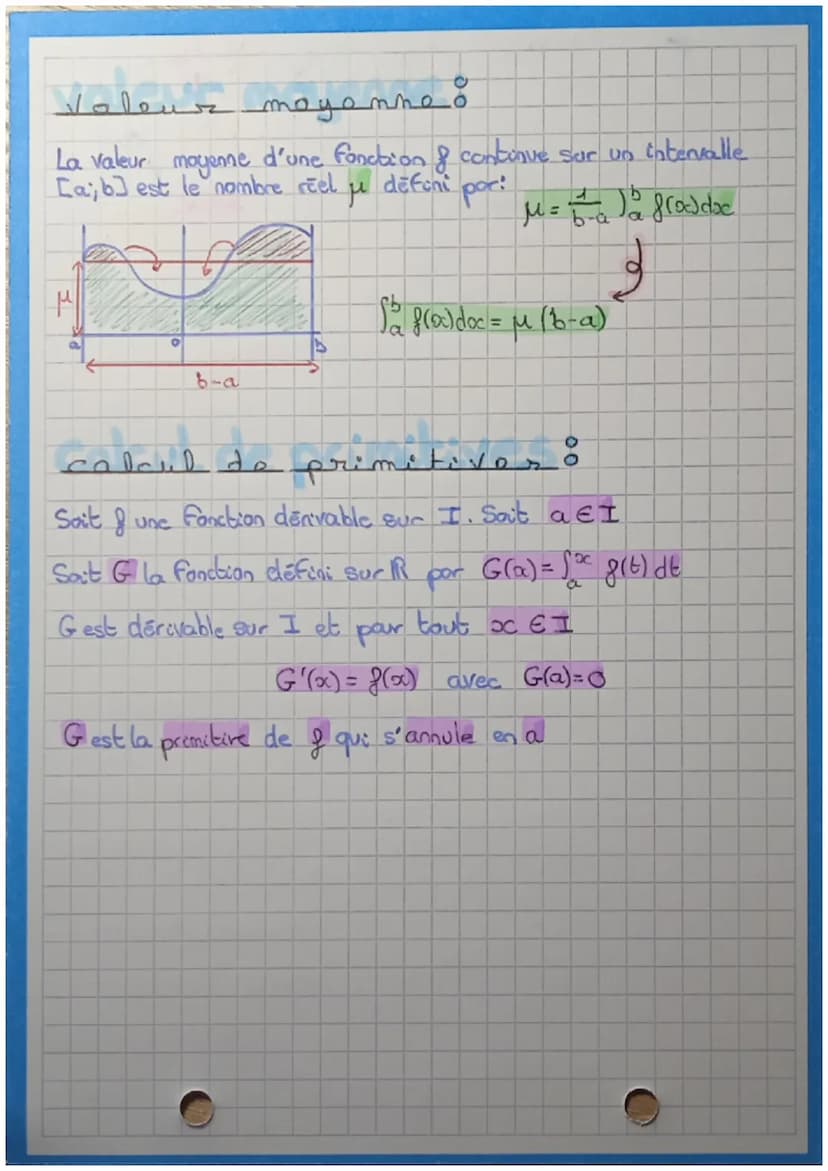 valeur moyenne :
La valeur moyenne d'une fonction f continue sur un intervalle
[a;b] est le nombre réel μ défini par :
μ = 1/(b-a) ∫_a^b f(x)dx
∫_a^b f(x)dx = μ (b-a)
μ
a o b
b-a
calcul de primitives :
Soit f une fonction dérivable sur I. Soit a ∈ I
Soit G la fonction défini sur ℝ par G(x) = ∫_a^x f(t) dt
G est dérivable sur I et par tout x ∈ I
G'(x) = f(x) avec G(a)=0
G est la primitive de f qui s'annule en a